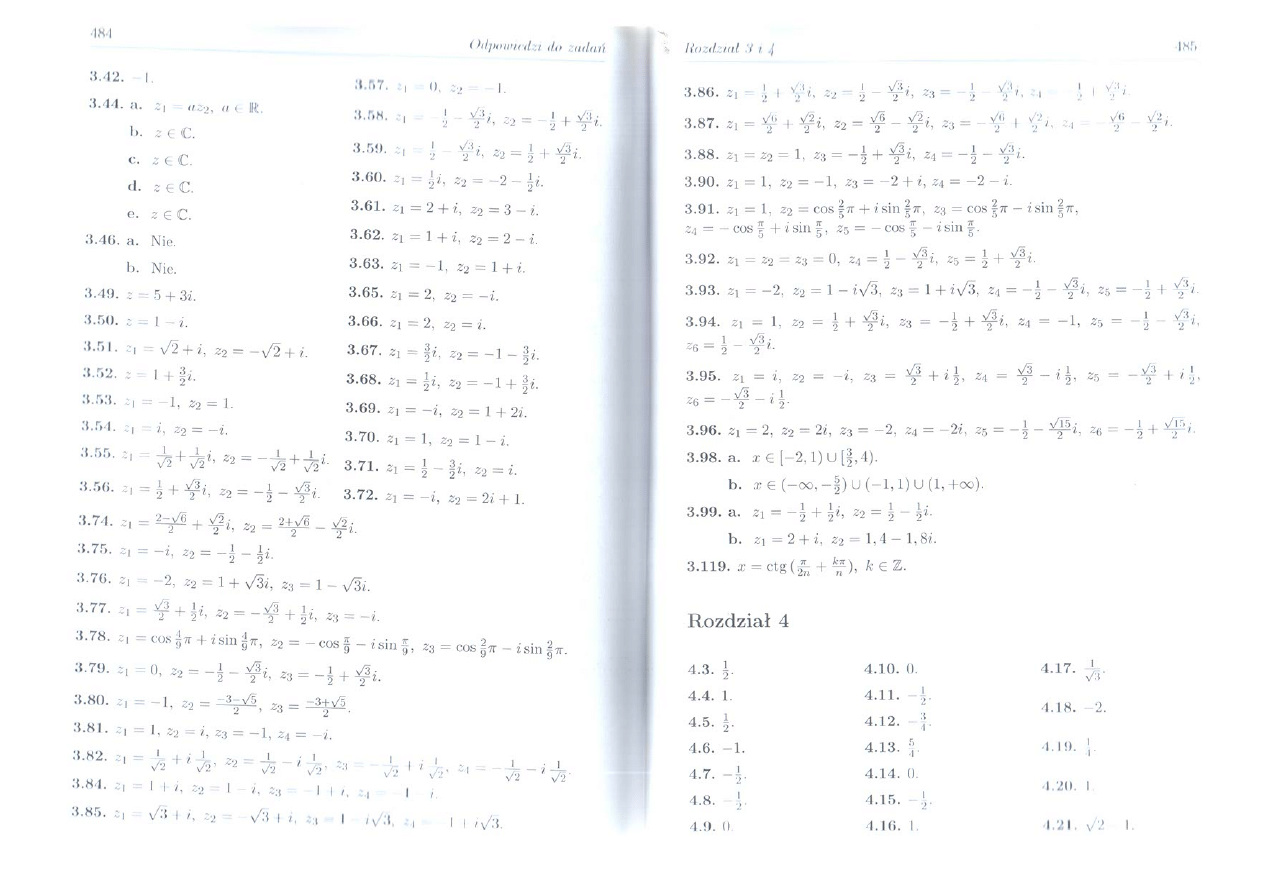 484
Odpowiedzi do zadań
3.42. −1.
3.44. a. z₁ = az₂, a ∈ ℝ.
b. z ∈ ℂ.
c. z ∈ ℂ.
d. z ∈ ℂ.
e. z ∈ ℂ.
3.46. a. Nie.
b. Nie.
3.49. z = 5 + 3i.
3.50. z = 1 − i.
3.51. z₁ = √2 + i, z₂ = −√2 + i.
3.52. z = 1 + 3/2 i.
3.53. z₁ = −1, z₂ = 1.
3.54. z₁ = i, z₂ = −i.
3.55. z₁ = 1/√2 + 1/√2 i, z₂ = −1/√2 + 1/√2 i.
3.56. z₁ = 1/2 + √3/2 i, z₂ = −1/2 − √3/2 i.
3.57. z₁ = 0, z₂ = −1.
3.58. z₁ = −1/2 − √3/2 i, z₂ = −1/2 + √3/2 i.
3.59. z₁ = 1/2 − √3/2 i, z₂ = 1/2 + √3/2 i.
3.60. z₁ = 1/2 i, z₂ = −2 − 1/2 i.
3.61. z₁ = 2 + i, z₂ = 3 − i.
3.62. z₁ = 1 + i, z₂ = 2 − i.
3.63. z₁ = −1, z₂ = 1 + i.
3.65. z₁ = 2, z₂ = −i.
3.66. z₁ = 2, z₂ = i.
3.67. z₁ = 3/2 i, z₂ = −1 − 3/2 i.
3.68. z₁ = 1/2 i, z₂ = −1 + 3/2 i.
3.69. z₁ = −i, z₂ = 1 + 2i.
3.70. z₁ = 1, z₂ = 1 − i.
3.71. z₁ = 1/2 − 3/2 i, z₂ = i.
3.72. z₁ = −i, z₂ = 2i + 1.
3.74. z₁ = (2−√6)/2 + √2/2 i, z₂ = (2+√6)/2 − √2/2 i.
3.75. z₁ = −i, z₂ = −1/2 − 1/2 i.
3.76. z₁ = −2, z₂ = 1 + √3i, z₃ = 1 − √3i.
3.77. z₁ = √3/2 + 1/2 i, z₂ = −√3/2 + 1/2 i, z₃ = −i.
3.78. z₁ = cos 4/9 π + i sin 4/9 π, z₂ = − cos π/9 − i sin π/9, z₃ = cos 2/9 π − i sin 2/9 π.
3.79. z₁ = 0, z₂ = −1/2 − √3/2 i, z₃ = −1/2 + √3/2 i.
3.80. z₁ = −1, z₂ = (−3−√5)/2, z₃ = (−3+√5)/2.
3.81. z₁ = 1, z₂ = i, z₃ = −1, z₄ = −i.
3.82. z₁ = 1/√2 + i 1/√2, z₂ = 1/√2 − i 1/√2, z₃ = −1/√2 + i 1/√2, z₄ = −1/√2 − i 1/√2.
3.84. z₁ = 1 + i, z₂ = 1 − i, z₃ = −1 + i, z₄ = −1 − i.
3.85. z₁ = √3 + i, z₂ = −√3 + i, z₃ = 1 − i√3, z₄ = −1 + i√3.
Rozdział 3 i 4
485
3.86. z₁ = 1/2 + √3/2 i, z₂ = 1/2 − √3/2 i, z₃ = −1/2 − √3/2 i, z₄ = −1/2 + √3/2 i.
3.87. z₁ = √6/2 + √2/2 i, z₂ = √6/2 − √2/2 i, z₃ = −√6/2 + √2/2 i, z₄ = −√6/2 − √2/2 i.
3.88. z₁ = z₂ = 1, z₃ = −1/2 + √3/2 i, z₄ = −1/2 − √3/2 i.
3.90. z₁ = 1, z₂ = −1, z₃ = −2 + i, z₄ = −2 − i.
3.91. z₁ = 1, z₂ = cos 2/5 π + i sin 2/5 π, z₃ = cos 2/5 π − i sin 2/5 π,
z₄ = − cos π/5 + i sin π/5, z₅ = − cos π/5 − i sin π/5.
3.92. z₁ = z₂ = z₃ = 0, z₄ = 1/2 − √3/2 i, z₅ = 1/2 + √3/2 i.
3.93. z₁ = −2, z₂ = 1 − i√3, z₃ = 1 + i√3, z₄ = −1/2 − √3/2 i, z₅ = −1/2 + √3/2 i.
3.94. z₁ = 1, z₂ = 1/2 + √3/2 i, z₃ = −1/2 + √3/2 i, z₄ = −1, z₅ = −1/2 − √3/2 i,
z₆ = 1/2 − √3/2 i.
3.95. z₁ = i, z₂ = −i, z₃ = √3/2 + i 1/2, z₄ = √3/2 − i 1/2, z₅ = −√3/2 + i 1/2,
z₆ = −√3/2 − i 1/2.
3.96. z₁ = 2, z₂ = 2i, z₃ = −2, z₄ = −2i, z₅ = −1/2 − √15/2 i, z₆ = −1/2 + √15/2 i.
3.98. a. x ∈ [−2, 1) ∪ [3/2, 4).
b. x ∈ (−∞, −5/2) ∪ (−1, 1) ∪ (1, +∞).
3.99. a. z₁ = −1/2 + 1/2 i, z₂ = 1/2 − 1/2 i.
b. z₁ = 2 + i, z₂ = 1,4 − 1,8i.
3.119. x = ctg (π/2n + kπ/n), k ∈ ℤ.
Rozdział 4
4.3. 1/2.
4.4. 1.
4.5. 1/2.
4.6. −1.
4.7. −1/2.
4.8. −1/2.
4.9. 0.
4.10. 0.
4.11. −1/2.
4.12. −3/4.
4.13. 5/4.
4.14. 0.
4.15. −1/2.
4.16. 1.
4.17. 1/√3.
4.18. −2.
4.19. 1/4.
4.20. 1.
4.21. √2 − 1.